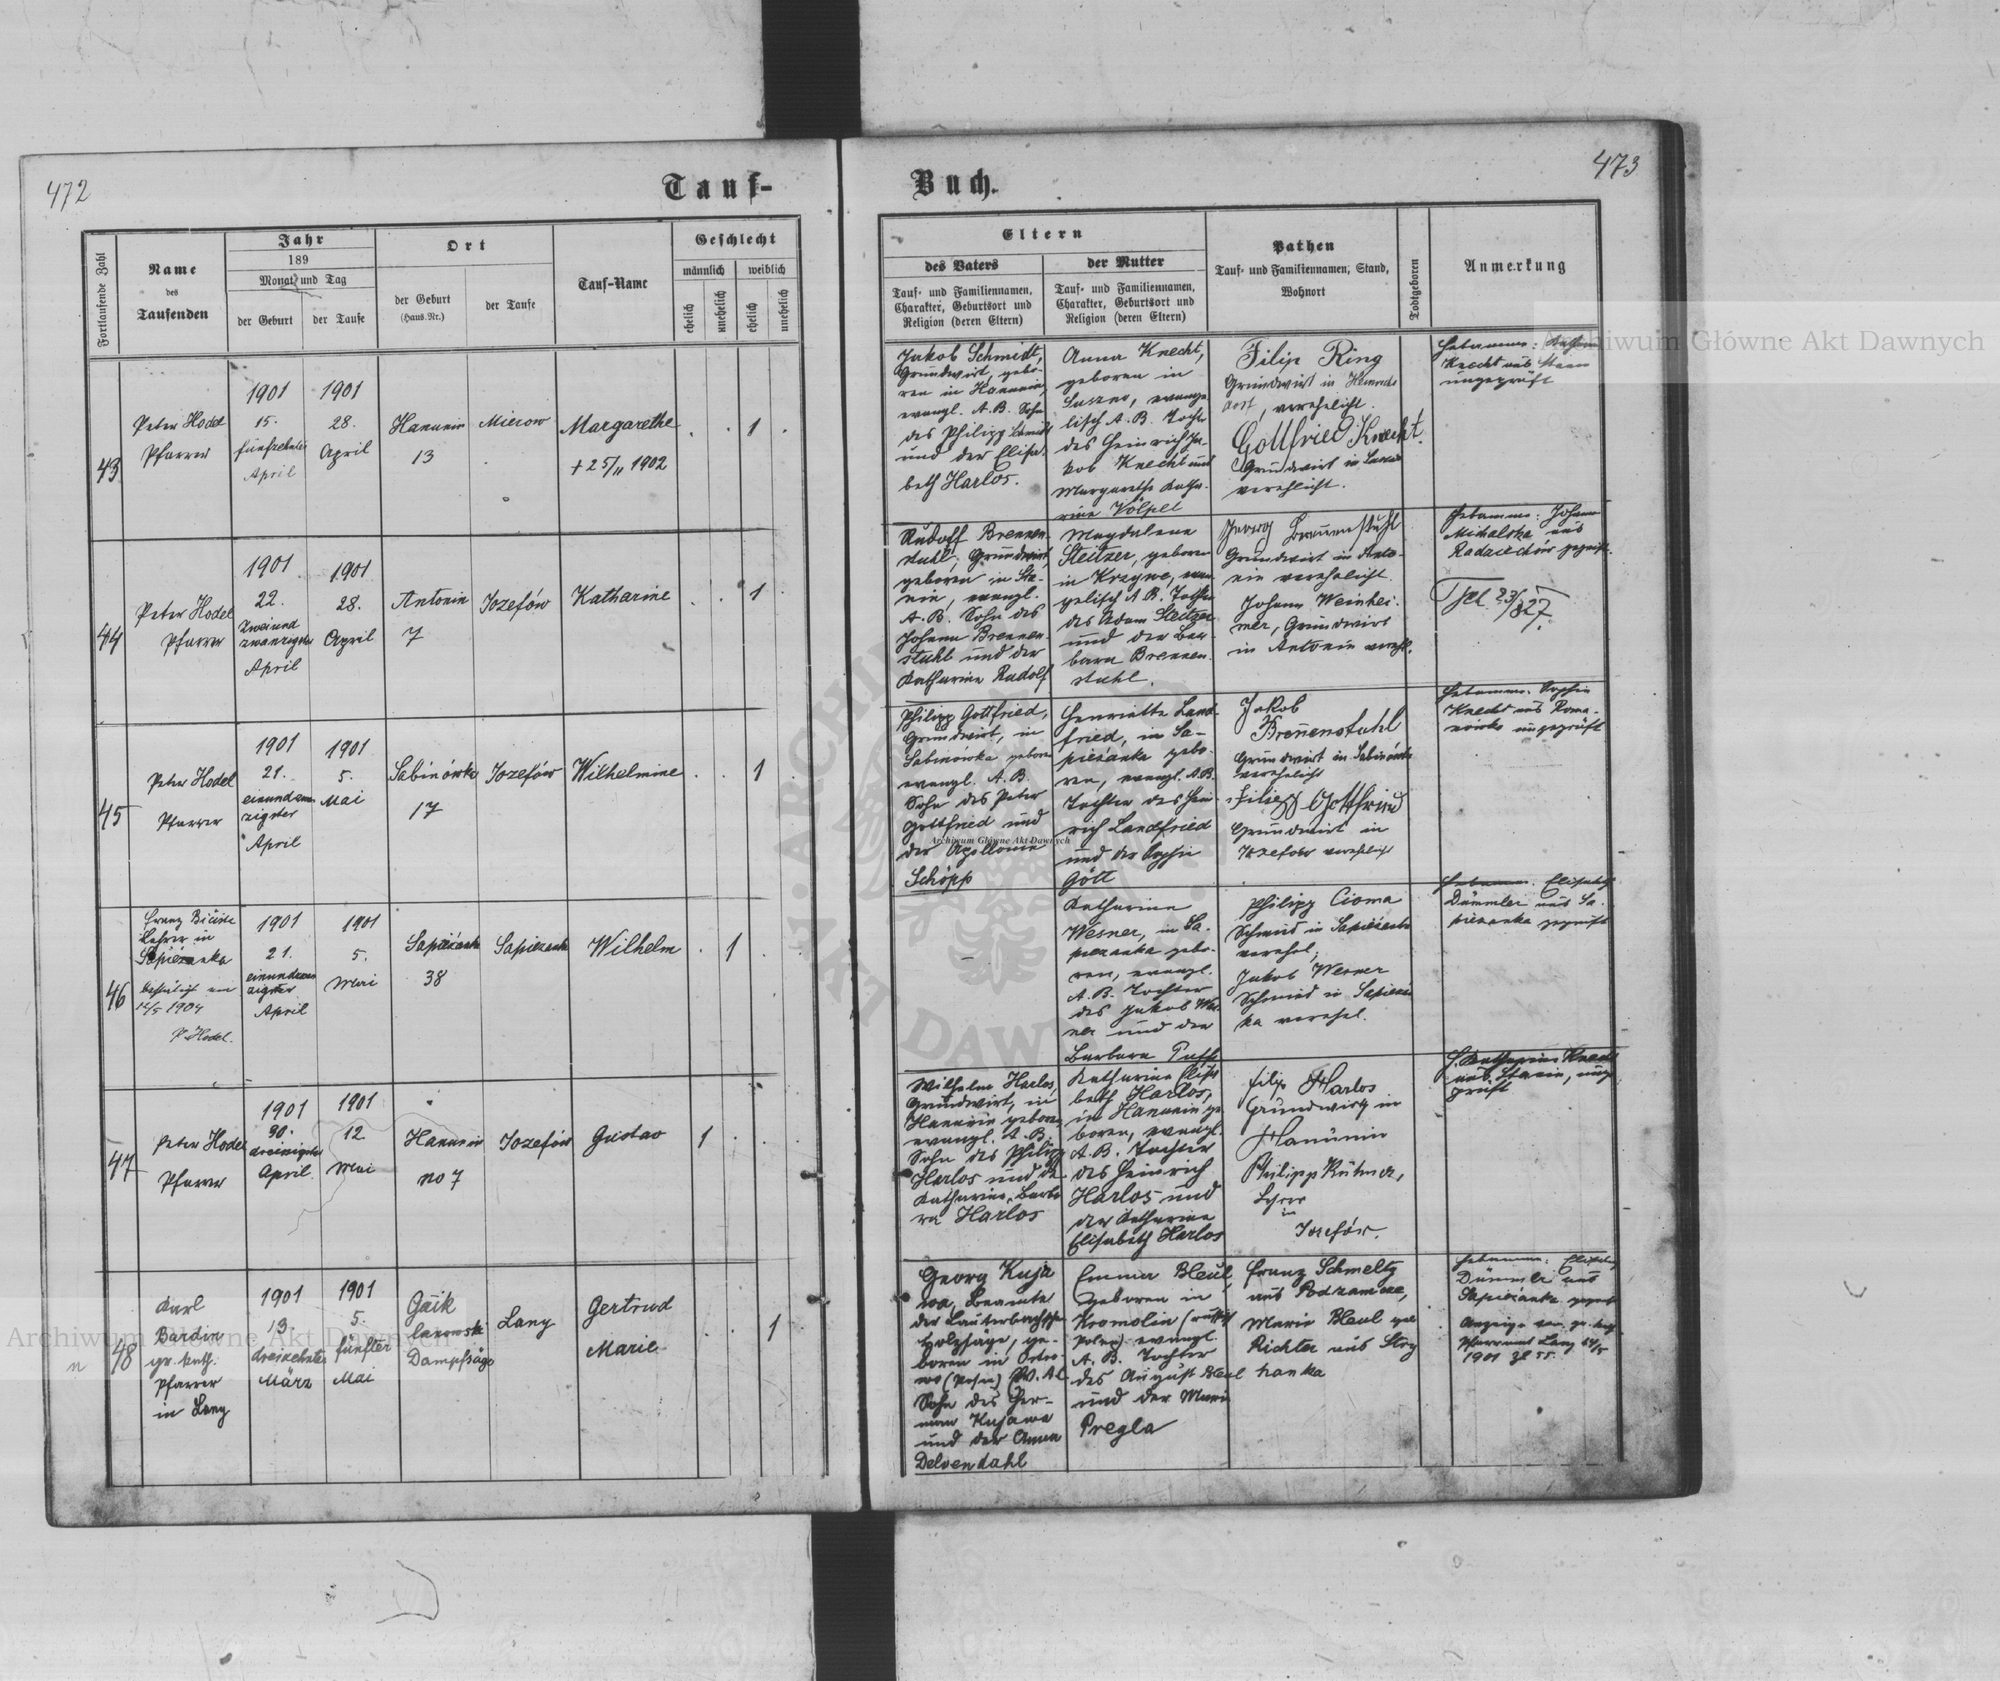 472
Tauf-
Fortlaufende Zahl
Name
des
Taufenden
Jahr
189
Monat und Tag
der Geburt
der Taufe
Ort
der Geburt
(Haus-Nr.)
der Taufe
Tauf-Name
Geschlecht
männlich
weiblich
ehelich
unehelich
ehelich
unehelich
43
Peter Hodel
Pfarrer
1901
15.
fünfzehnter
April
1901
28.
April
Hanunin
13
Mierow
Margarethe
+ 25/11 1902
1
44
Peter Hodel
Pfarrer
1901
22.
Zweiund
zwanzigster
April
1901
28.
April
Antonin
7
Jozefów
Katharine
1
45
Peter Hodel
Pfarrer
1901
21.
einundzwan
zigster
April
1901
5.
Mai
Sabinówka
17
Jozefów
Wilhelmine
1
46
Franz
Lehrer in
Sapiezanka
1904
P. Hodel.
1901
21.
einundzwan
zigster
April
1901
5.
Mai
Sapiezank
38
Sapiezank
Wilhelm
1
47
Peter Hodel
Pfarrer
1901
30.
dreissigster
April
1901
12
Mai
Hanunin
no 7
Jozefów
Gustav
1
48
Karl
Bardin
gr. kath.
Pfarrer
in Lany
1901
13.
dreizehnter
März
1901
5.
fünfter
Mai
Gaik
lanowski
Dampfsäge
Lany
Gertrud
Marie
1
473
Buch.
Eltern
des Vaters
Tauf- und Familiennamen,
Charakter, Geburtsort und
Religion (deren Eltern)
der Mutter
Tauf- und Familiennamen,
Charakter, Geburtsort und
Religion (deren Eltern)
Pathen
Tauf- und Familiennamen, Stand,
Wohnort
Todtgeboren
Anmerkung
Jakob Schmidt,
Grundwirt, gebo-
ren in Hanunin,
evangl. A. B. Sohn
des Philipp Schmidt
und der Elisa-
beth Harlos.
Anna Knecht,
geboren in
evange
lisch A. B. Tochter
des Heinrich Ja-
kob Knecht und
Margarethe Katha-
rine Völpel
Filip Ring
Grundwirt in Heinrichs
dorf, verehelicht.
Gottfried Knecht.
Grundwirt in
verehlicht.
Hebamme:
Knecht aus
ungeprüft
Rudolf Brennen-
stuhl, Grundwirt,
geboren in Sta-
nin, evangl.
A. B. Sohn des
Johann Brennen-
stuhl und der
Katharine Rudolf
Magdalena
Steitzer, geboren
in Krzywe, evan
gelisch A. B. Tochter
des Adam Steitzer
und der Bar-
bara Brennen-
stuhl.
Georg Brennenstuhl
Grundwirt in Anto-
nin verehelicht.
Johann Weinhei-
mer, Grundwirt
in Antonin verehl.
Hebamme: Johanna
Michalska aus
Radziechów geprüft.
23/
Philipp Gottfried,
Grundwirt, in
Sabinówka geboren
evangl. A. B.
Sohn des Peter
Gottfried und
der Apollonia
Schöpp
Henriette Land-
fried, in Sa-
piezanka gebo-
ren, evangl. A.B.
Tochter des Hein-
rich Landfried
und der Sophie
Gött
Jakob
Brenenstuhl
Grundwirt in Sabinówka
verehelicht
Filipp Gottfried
Grundwirt in
Jozefow verehlicht
Hebamme: Sophie
Knecht aus Roma-
nówka ungeprüft
Katharina
Wesner, in Sa-
piezanka gebo-
ren, evangl.
A. B. Tochter
des Jakob Wes-
ner und der
Barbara
Philipp Cioma
Schmied in Sapiezanka
verehel,
Jakob Wesner
Schmied in Sapiezan
ka verehel.
Hebamme: Elisabeth
Dümmler aus Sa-
piezanka geprüft
Wilhelm Harlos,
Grundwirt, in
Hanunin geboren,
evangl. A. B.
Sohn des Philipp
Harlos und der
Katharina Barba
ra Harlos
Katharina Elisa
beth Harlos,
in Hanunin ge-
boren, evangl.
A. B. Tochter
des Heinrich
Harlos und
der Katharina
Elisabeth Harlos
Filip Harlos
Grundwirt in
Hanunin
Philipp Kühner,
Lehrer
in
Jozefów.
H. Katharina Knecht
aus Stanin, unge
prüft
Georg Kuja
wa, Beamte
der Lauterbachschen
Holzsäge, ge-
boren in Ostro-
wo (Posen)
Sohn des Her-
man Kujawa
und der Anna
Delvendahl
Emma Bleul,
geboren in
Kromolin (russisch
Polen) evangl.
A. B. Tochter
des August Bleul
und der Maria
Pregla
Franz Schmeltz
aus Podzamcze,
Marie Bleul geb
Richter aus Stry
hanka
Hebamme: Elisabeth
Dümmler aus
Sapiezanka geprüft
Anzeige vom gr. kath
Pfarramt Lany
1901 Zl 55.
Archiwum Główne Akt Dawnych
Archiwum Główne Akt Dawnych
Archiwum Główne Akt Dawnych